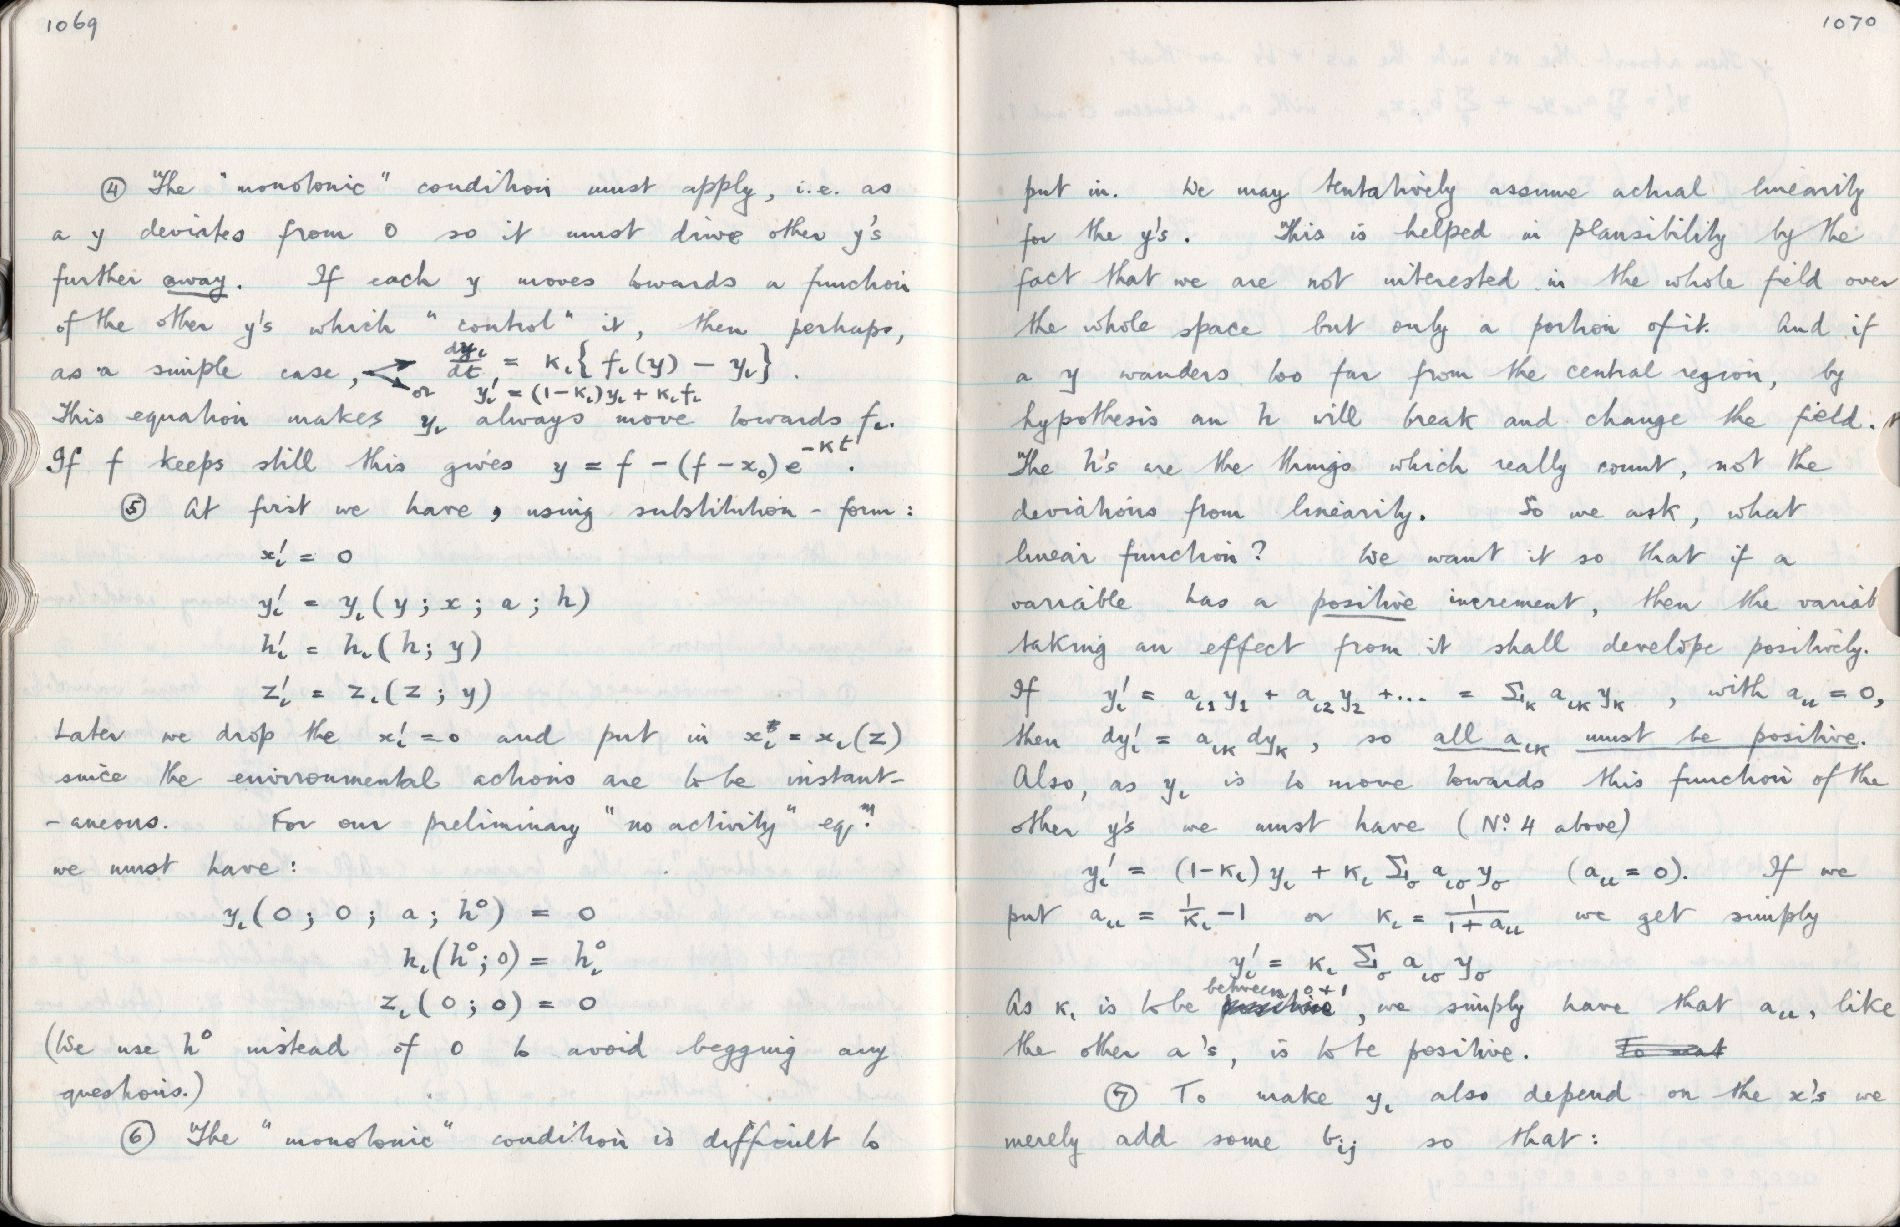 1069
④ The "monotonic" condition must apply, i.e. as
a y deviates from 0 so it must drive other y's
further away. If each y moves towards a function
of the other y's which "control" it, then perhaps,
as a simple case, dyᵢ/dt = κᵢ{fᵢ(y) − yᵢ}.
or yᵢ' = (1−κᵢ)yᵢ + κᵢfᵢ
This equation makes yᵢ always move towards fᵢ.
If f keeps still this gives y = f − (f − x₀)e^−κt.
⑤ At first we have, using substitution - form:
xᵢ' = 0
yᵢ' = yᵢ(y; x; a; h)
hᵢ' = hᵢ(h; y)
zᵢ' = zᵢ(z; y)
Later we drop the xᵢ' = 0 and put in xᵢᵗ = xᵢ(z)
since the environmental actions are to be instant-
-aneous. For our preliminary "no activity" eqⁿ.
we must have:
yᵢ(0; 0; a; h⁰) = 0
hᵢ(h⁰; 0) = hᵢ⁰
zᵢ(0; 0) = 0
(We use h⁰ instead of 0 to avoid begging any
questions.)
⑥ The "monotonic" condition is difficult to
1070
put in. We may tentatively assume actual linearity
for the y's. This is helped in plausibility by the
fact that we are not interested in the whole field over
the whole space but only a portion of it. And if
a y wanders too far from the central region, by
hypothesis an h will break and change the field.
The h's are the things which really count, not the
deviations from linearity. So we ask, what
linear function? We want it so that if a
variable has a positive increment, then the variab
taking an effect from it shall develope positively.
If yᵢ' = aᵢ₁y₁ + aᵢ₂y₂ + ... = Σκ aᵢκ yκ, with aᵢᵢ = 0,
then dyᵢ' = aᵢκ dyκ, so all aᵢκ must be positive.
Also, as yᵢ is to move towards this function of the
other y's we must have (Nº 4 above)
yᵢ' = (1−κᵢ)yᵢ + κᵢ Σσ aᵢσ yσ (aᵢᵢ = 0). If we
put aᵢᵢ = 1/κᵢ − 1 or κᵢ = 1/(1 + aᵢᵢ) we get simply
yᵢ' = κᵢ Σσ aᵢσ yσ
As κᵢ is to be positive between 0 + 1, we simply have that aᵢᵢ, like
the other a's, is to be positive.
⑦ To make yᵢ also depend on the x's we
merely add some bij so that: